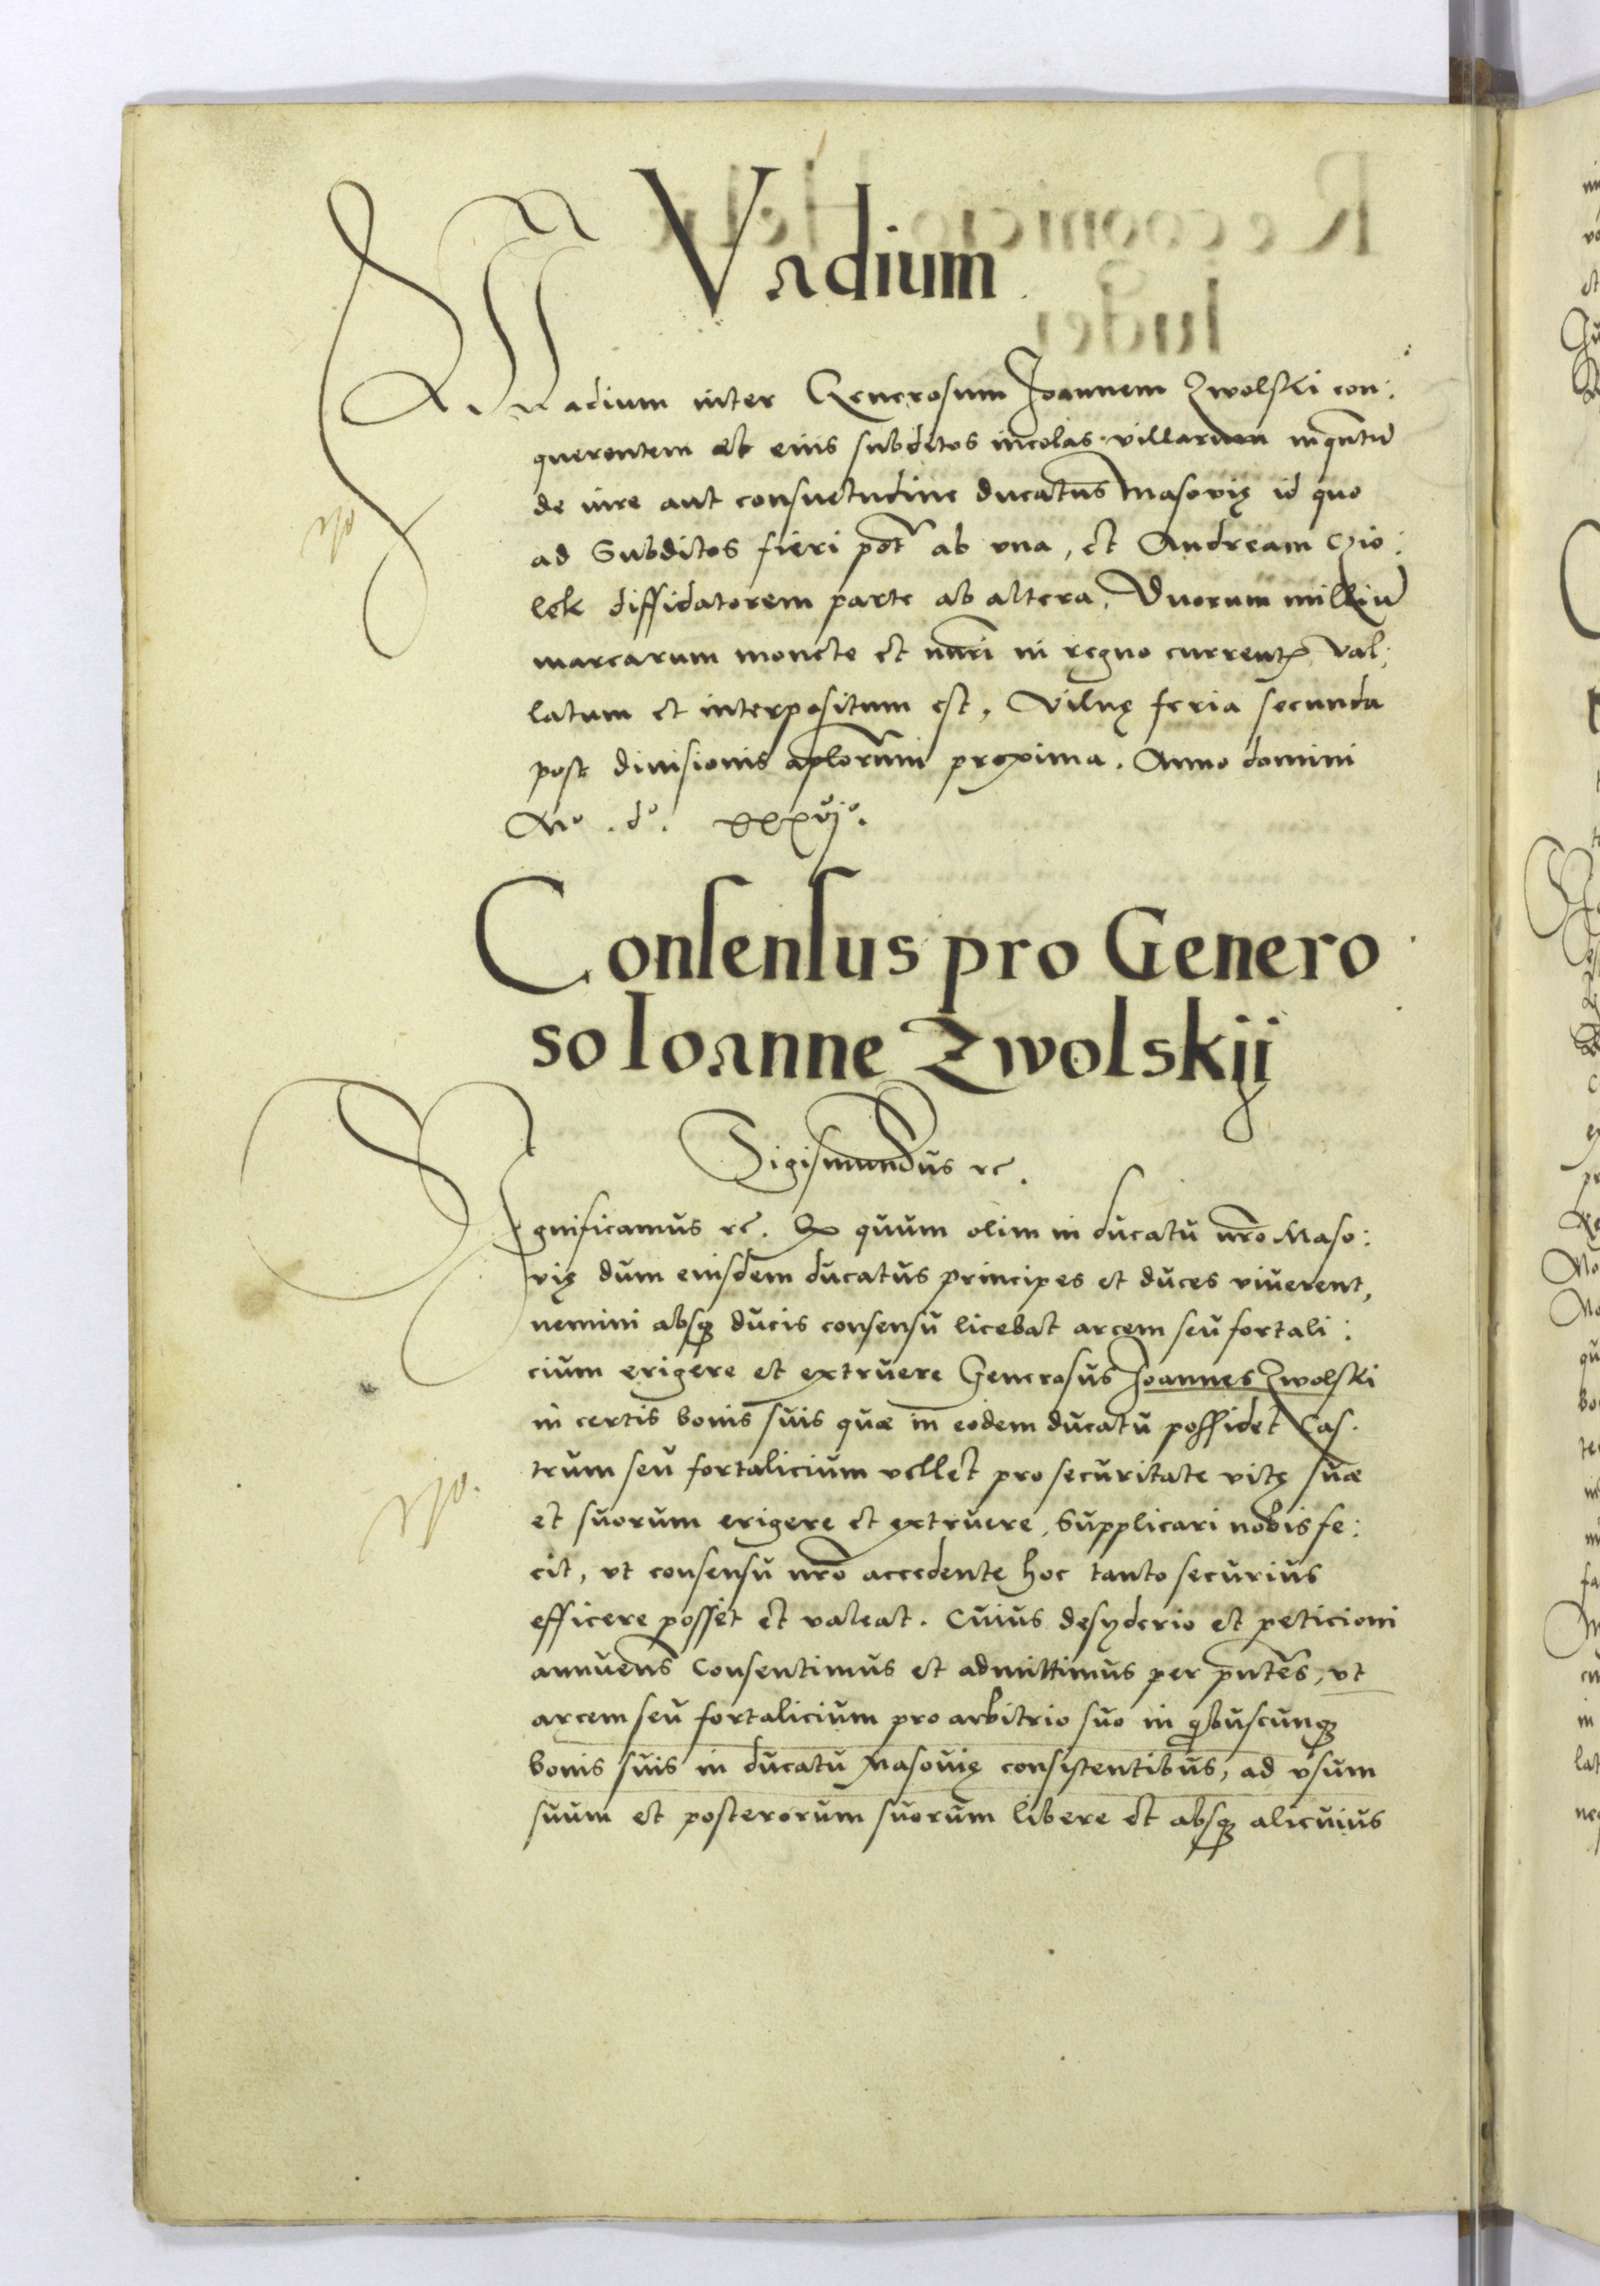 Vadium
Vadium inter Generosum Joannem Zwolski con:
querentem et eius subditos incolas villarum inquntu
de iure aut consuetudine ducatus Masovię id quo
ad Subditos fieri pot ab una, et Andream Czio:
lek diffidatorem parte ab altera, Duorum milliu
marcarum monete et nuri in regno current val:
latum et interpositum est, Vilnę feria secunda
post divisionis aplorum proxima. Anno domini
Mº. dº. xxxvjº.
Consensus pro Genero
so Ioanne Zwolskij
Sigismundus rc.
Significamus rc. Quum olim in ducatu nro Maso:
vię dum eiusdem ducatus principes et duces viverent,
nemini absq ducis consensu licebat arcem seu fortali:
cium erigere et extruere Generosus Joannes Zwolski
in certis bonis suis quæ in eodem ducatu possidet Cas.
trum seu fortalicium vellet pro securitate vitę suæ
et suorum erigere et extruere, Supplicari nobis fe:
cit, ut consensu nro accedente hoc tanto securius
efficere posset et valeat. Cuius desyderio et peticioni
annuens Consentimus et admittimus per pntes, ut
arcem seu fortalicium pro arbitrio suo in qbuscunq
bonis suis in ducatu Masovię consistentibus, ad usum
suum et posterorum suorum libere et absq alicuius